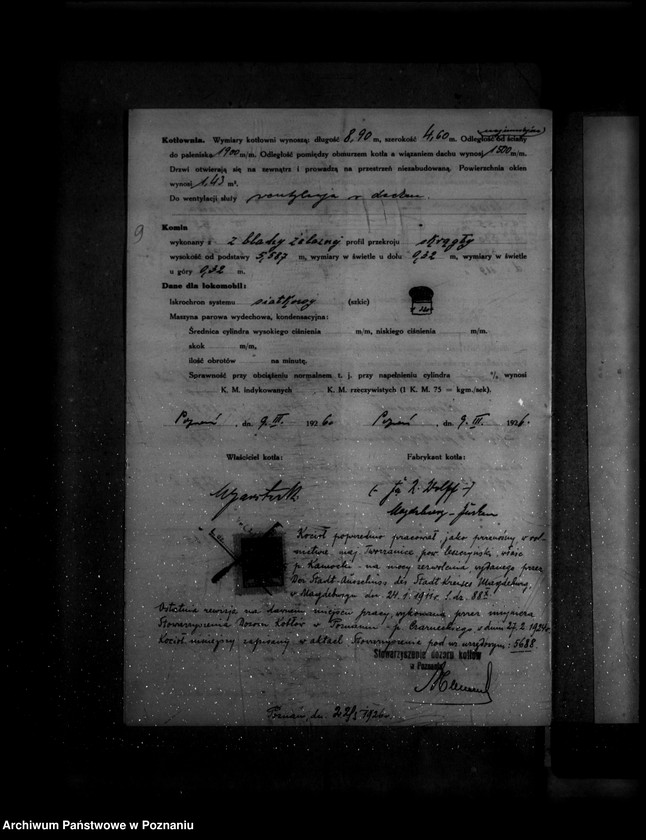 Kotłownia. Wymiary kotłowni wynoszą: długość 8,90 m, szerokość 4,60 m. Odległość od ściany
do paleniska 1900 m/m. Odległość pomiędzy obmurzem kotła a wiązaniem dachu wynosi 1500 m/m.
Drzwi otwierają się na zewnątrz i prowadzą na przestrzeń niezabudowaną. Powierzchnia okien
wynosi 1,43 m².
Do wentylacji służy wentylacja w dachu.
9
Komin
wykonany z z blachy żelaznej profil przekroju okrągły
wysokość od podstawy 5,587 m, wymiary w świetle u dołu 0,32 m, wymiary w świetle
u góry 0,32 m.
Dane dla lokomobil:
Iskrochron systemu siatkowy (szkic)
Maszyna parowa wydechowa, kondensacyjna:
Średnica cylindra wysokiego ciśnienia m/m, niskiego ciśnienia m/m.
skok m/m,
ilość obrotów na minutę.
Sprawność przy obciążeniu normalnem t. j. przy napełnieniu cylindra %, wynosi
K. M. indykowanych K. M. rzeczywistych (1 K. M. 75 = kgm./sek).
Poznań, dn. 9. III. 1926 Poznań, dn. 9. III. 1926.
Właściciel kotła: Fabrykant kotła:
(-) R. Wolff (-)
Magdeburg-Buckau
Kocioł poprzednio pracował jako przenośny w rol-
nictwie, maj. Tworzanice pow. Leszczyński, właśc.
p. Kamocki - na mocy zezwolenia wydanego przez
Der Stadt-Ausschuss des Stadt-Kreises Magdeburg,
w Magdeburgu dn. 24. 1. 1911 r.
Ostatnia rewizja na dawnem miejscu pracy wykonana przez inżyniera
Stowarzyszenia Dozoru Kotłów w Poznaniu p. Czarneckiego z dnia 27. 2. 1924 r.
Kocioł niniejszy zapisany w aktach Stowarzyszenia pod nr. urzędowym: 5688.
Stowarzyszenie dozoru kotłów
w Poznaniu
Poznań dn. 22/3 1926 r.
Archiwum Państwowe w Poznaniu